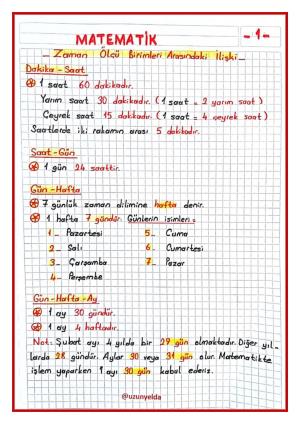 MATEMATİK
- 1 -
- Zaman Ölçü Birimleri Arasındaki İlişki -
Dakika - Saat
1 saat 60 dakikadır.
Yarım saat 30 dakikadır. (1 saat = 2 yarım saat)
Çeyrek saat 15 dakikadır. (1 saat = 4 çeyrek saat)
Saatlerde iki rakamın arası 5 dakikadır.
Saat - Gün
1 gün 24 saattir.
Gün - Hafta
7 günlük zaman dilimine hafta denir.
1 hafta 7 gündür. Günlerin isimleri =
1- Pazartesi
2- Salı
3- Çarşamba
4- Perşembe
5- Cuma
6- Cumartesi
7- Pazar
Gün - Hafta - Ay
1 ay 30 gündür.
1 ay 4 haftadır.
Not: Şubat ayı 4 yılda bir 29 gün olmaktadır. Diğer yıl-
larda 28 gündür. Aylar 30 veya 31 gün olur. Matematikte
işlem yaparken 1 ayı 30 gün kabul ederiz.
@uzunyelda